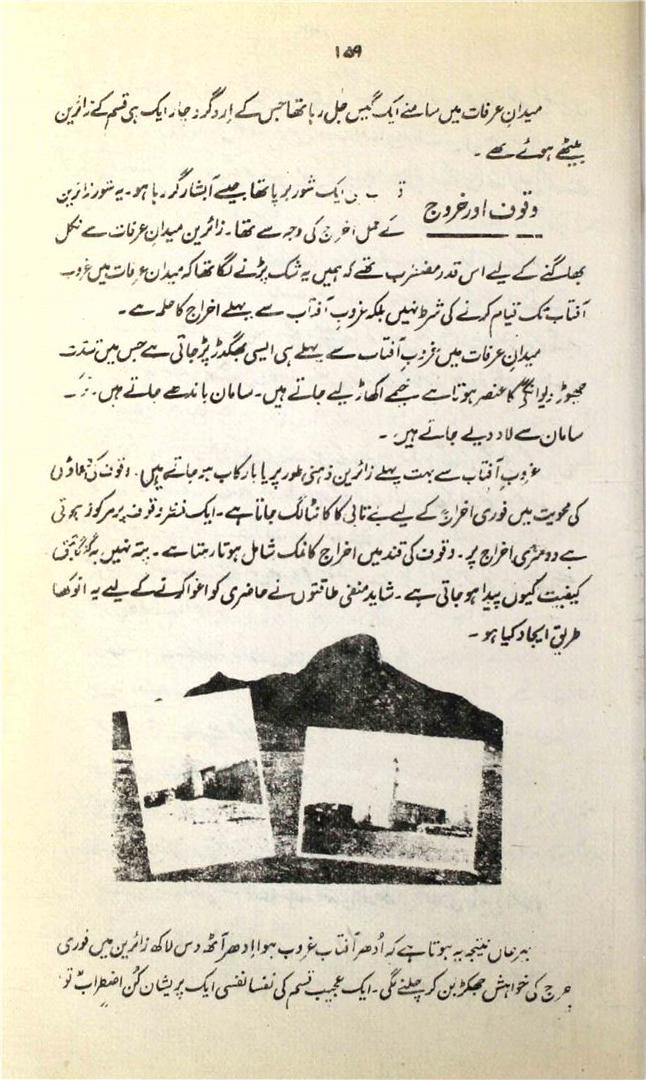 ۱۵۹
میدانِ عرفات میں سامنے ایک گیس جل رہا تھا جس کے اِردگرد چار ایک ہی قسم کے زائرین
بیٹھے ہوئے تھے۔
وقوف اور خروج
ایک شور برپا تھا جیسے آبشار گر رہا ہو۔ یہ شور زائرین
کے عملِ اخراج کی وجہ سے تھا۔ زائرین میدانِ عرفات سے نکل
بھاگنے کے لیے اس قدر مضطرب تھے کہ ہمیں یہ شک پڑنے لگا تھا کہ میدانِ عرفات میں غروب
آفتاب تک قیام کرنے کی شرط نہیں بلکہ غروبِ آفتاب سے پہلے اخراج کا حکم ہے۔
میدانِ عرفات میں غروبِ آفتاب سے پہلے ہی ایسی بھگدڑ پڑ جاتی ہے جس میں شدت
چھوڑ دیوانگی کا عنصر ہوتا ہے خیمے اکھاڑ لیے جاتے ہیں۔ سامان باندھے جاتے ہیں۔
سامان سے لاد دیے جاتے ہیں۔
غروبِ آفتاب سے بہت پہلے زائرین ذہنی طور پر پا بہ رکاب ہو جاتے ہیں۔ وقوف کی دعاؤں
کی محویت میں فوری اخراج کے لیے بے تابی کا کانٹا لگ جاتا ہے۔ ایک نظر وقوف پر مرکوز ہوتی
ہے دوسری اخراج پر۔ وقوف کی قند میں اخراج کا نمک شامل ہوتا رہتا ہے۔ پتہ نہیں یہ گومگو کی
کیفیت کیوں پیدا ہو جاتی ہے۔ شاید منفی طاقتوں نے حاضری کو اغوا کرنے کے لیے یہ انوکھا
طریق ایجاد کیا ہو۔
بہرحال نتیجہ یہ ہوتا ہے کہ اُدھر آفتاب غروب ہوا اِدھر آٹھ دس لاکھ زائرین میں فوری
خروج کی خواہش جھکڑ بن کر چلنے لگی۔ ایک عجیب قسم کی نفسا نفسی ایک پریشان کُن اضطراب تو